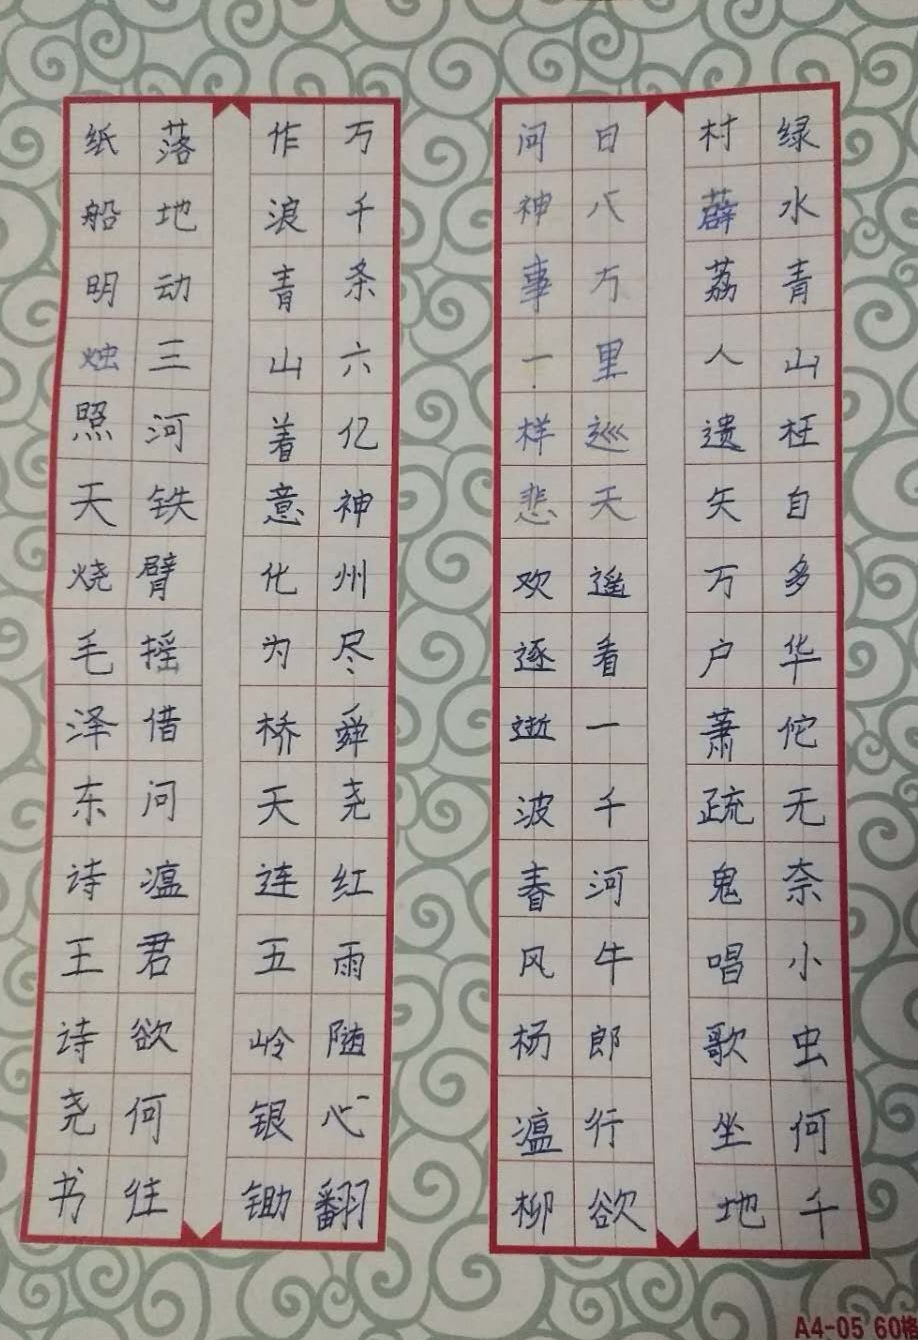 绿水青山枉自多华佗无奈小虫何千
村薜荔人遗矢万户萧疏鬼唱歌坐地
日八万里巡天遥看一千河牛郎行欲
问神事一样悲欢逐逝波春风杨瘟柳
万千条六亿神州尽舜尧红雨随心翻
作浪青山着意化为桥天连五岭银锄
落地动三河铁臂摇借问瘟君欲何往
纸船明烛照天烧毛泽东诗王诗尧书
A4-05 60格